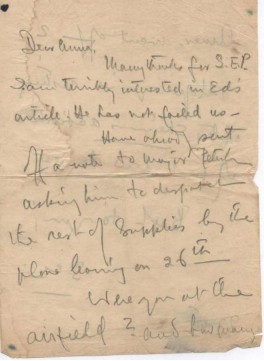 Dear Anna,
Many thanks for S.E.P.
I am terribly interested in Eds
article. He has not failed us –
Have already sent
off a note to Major
asking him to despatch
the rest of supplies by the
plane leaving on 26th
Were you at the
airfield? and how many